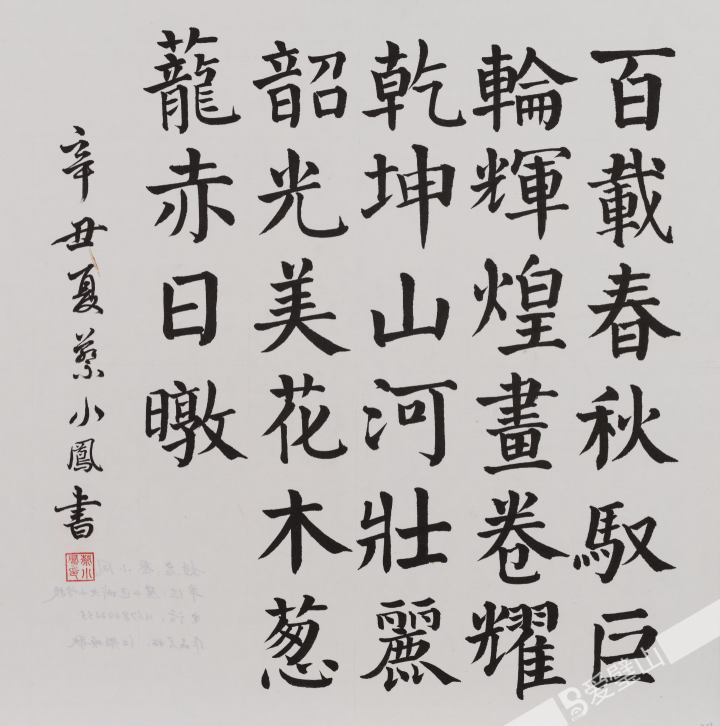 百載春秋馭巨
輪輝煌畫卷耀
乾坤山河壯麗
韶光美花木葱
蘢赤日暾
辛丑夏蔡小鳳書
爱璧山